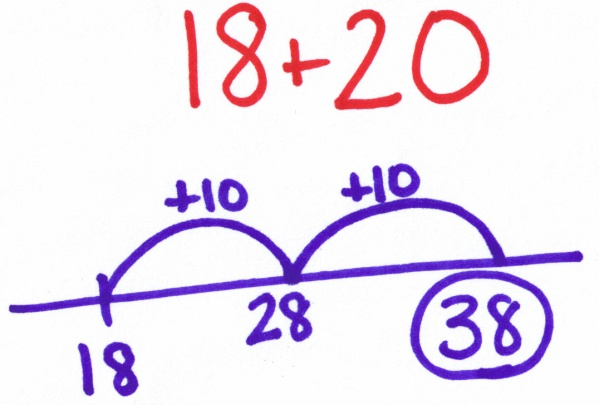 18+20
+10 +10
18 28 38